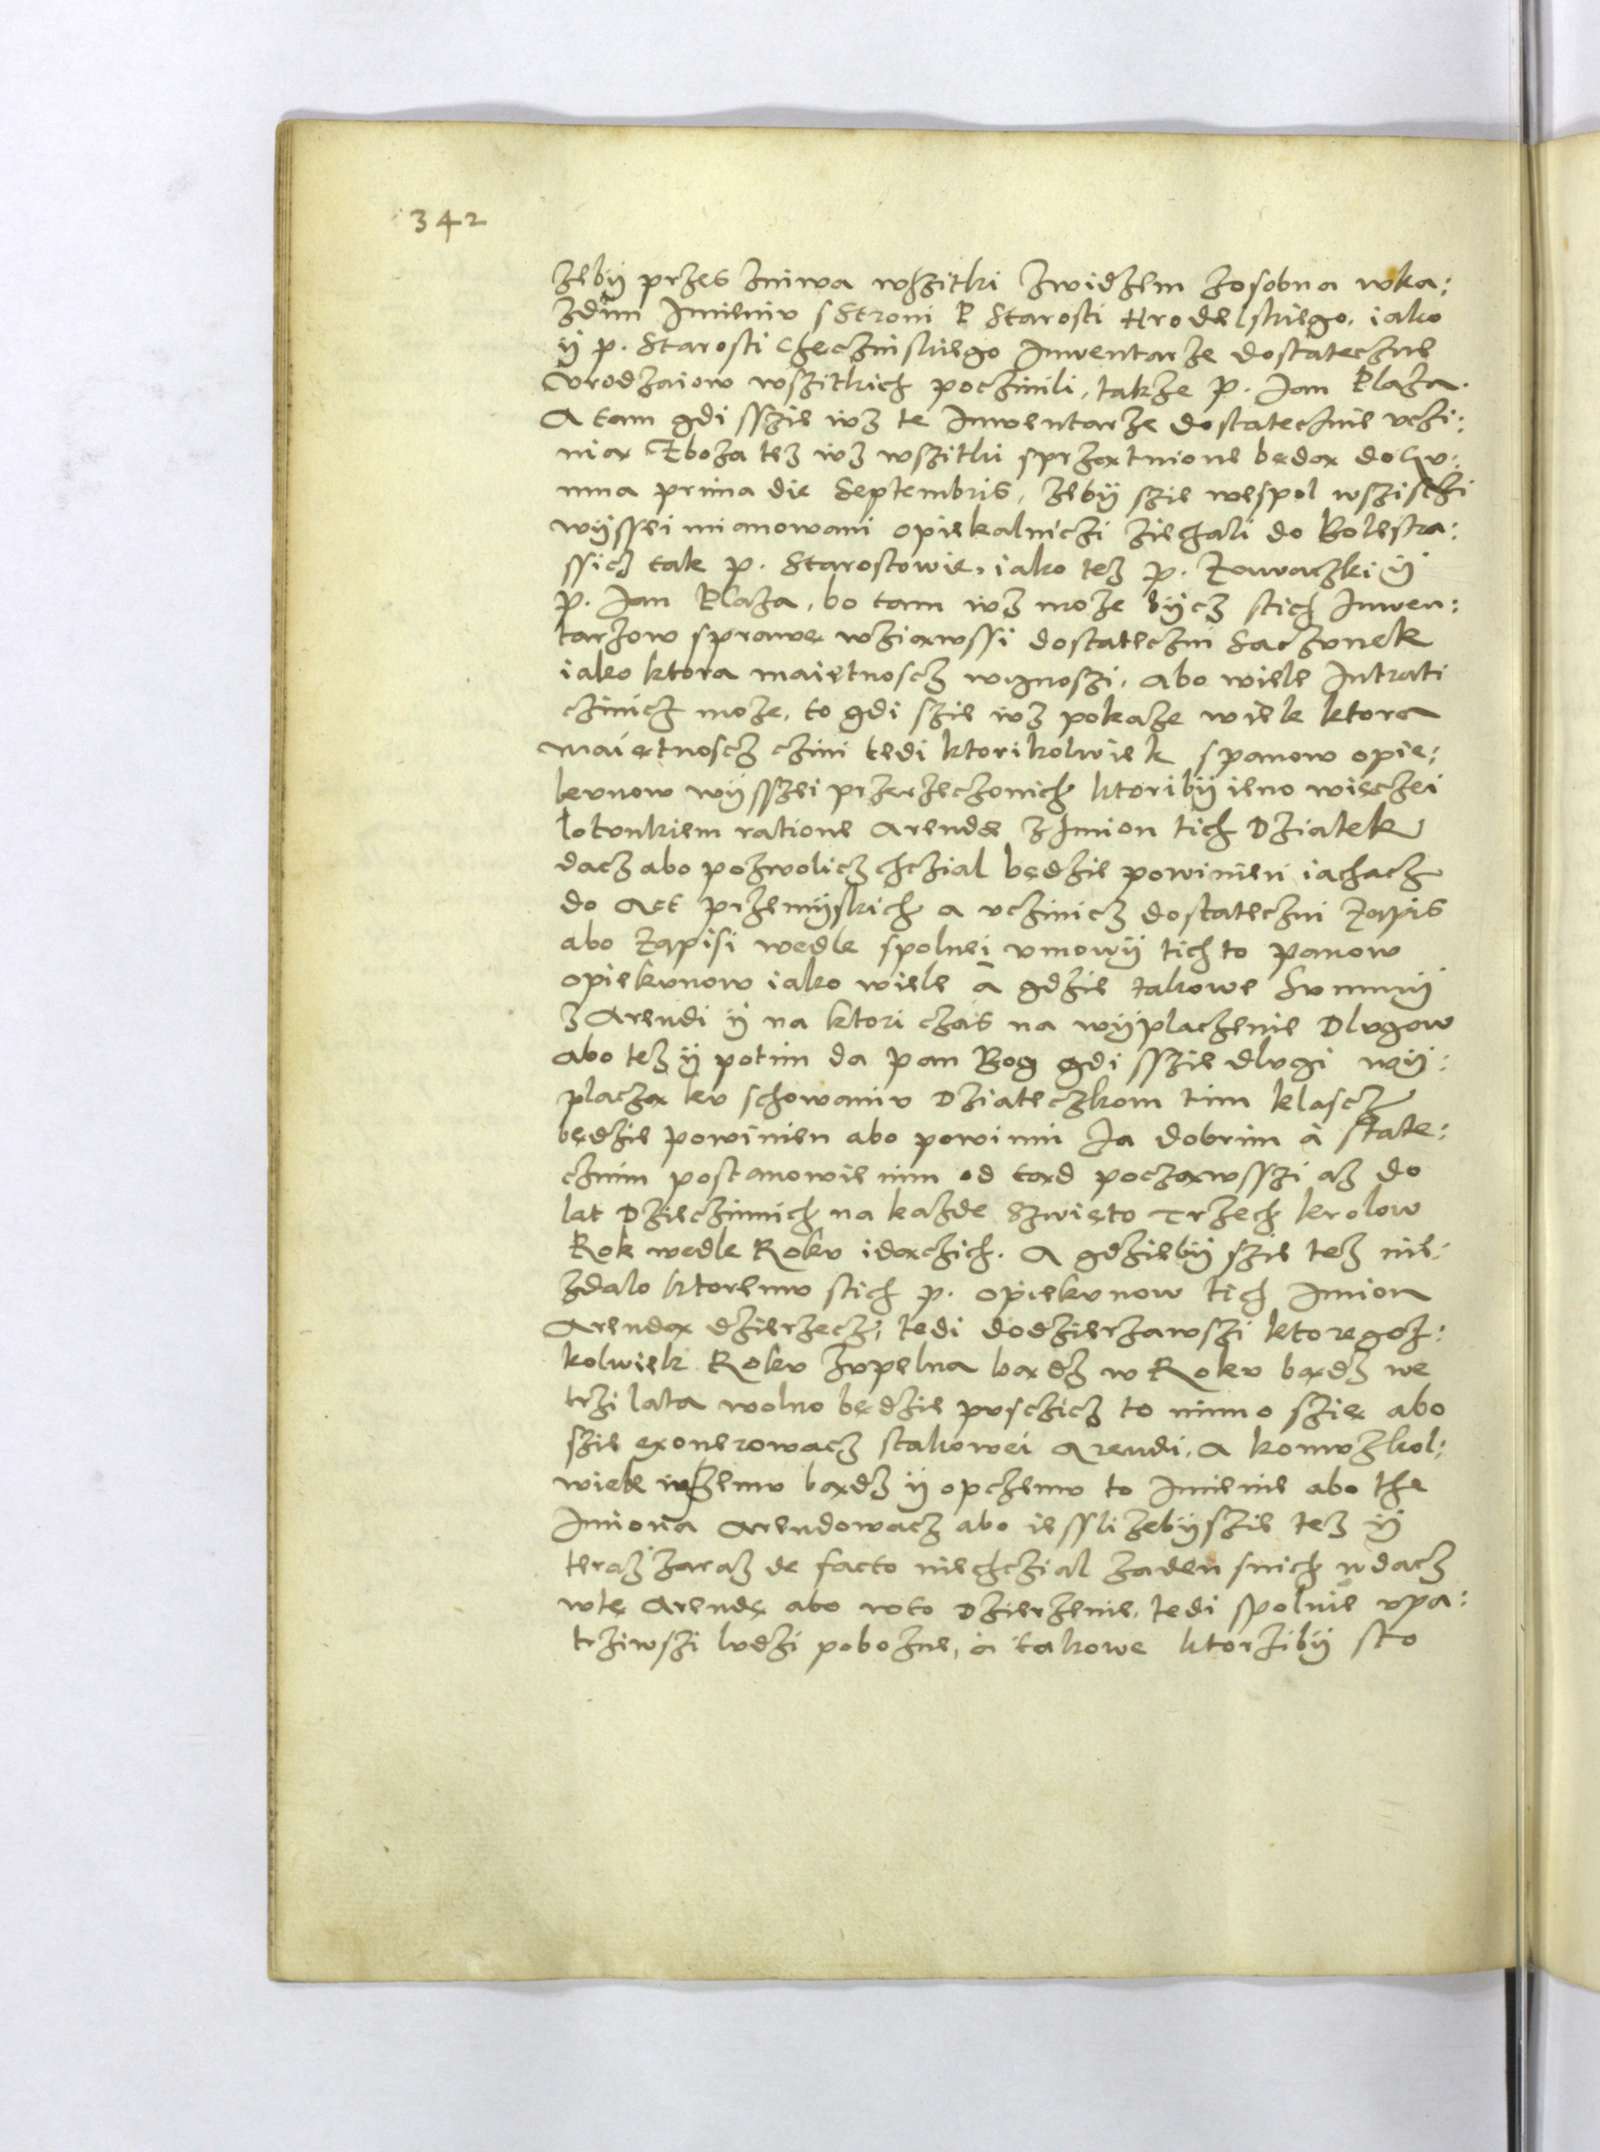 342
żebÿ przes zniwa wszitki zwidzem zosobna wka:
zdim Imieniu s Stroni P Starosti Hrodelskiego, iako
ÿ p. Starosti Chęczinskiego Inwentarze dostateczne
Vrodzaiow wszitkich poczinili, takze p. Jan Plaza.
A tam gdi sszie iuz te Inwentarze dostatecznie vczi:
niąx Zboza tez iuz wszitki sprzątnione będą do
prima die Septembris, zebÿ szie wespol wszisczi
wÿssei mianowani opiekalniczi ziechali do Bolestra:
ssicz tak p. Starostowie, iako tez p. Zawaczki ÿ
p. Jan Plaza, bo tam iuz moze bÿcz stich Inwen:
tarzow sprawę wziąwssi dostateczni Saczunek
iako ktora maiętnoscz wznoszi, abo wiele Intrati
czinicz moze, to gdi szie iuz pokaze wiele ktora
maiętnoscz czini tedi ktorikolwiek spanow opie:
kunow wÿsszei przerzeczonich ktoribÿ ieno więczei
lotunkiem ratione Arendę z Imion tich Dziatek
dacz abo pozwolicz chczial będzie powinien iachacz
do Act przemÿskich a vczinicz dostateczni Zapis
abo Zapisi wedle spolnei vmowÿ tich to panow
opiekunow iako wiele a gdzie takowe Summÿ
z Arendi ÿ na ktori czas na wÿplaczenie Dlugow
abo tez ÿ potim da pan Bog gdi sszie dlugi wÿ:
placzą ku schowaniu Dziateczkom tim klascz
będzie powinien abo powinni Za dobrim a state:
cznim postanowienim od tąd począwsszi az do
lat Dzieczinnich na kazde Szwięto Trzech krolow
Rok wedle Roku idączich. A gdziebÿ szie tez nie:
zdalo ktoremu stich p. opiekunow tich Imion
Arendą dzierzecz, tedi dodzierzawszi ktoregoz:
kolwiek Roku zupelna bądz w Roku bądz we
trzi lata wolno będzie pusczicz to mimo szię abo
szie exonerowacz stakowei Arendi, a komuzkol:
wiek bądz ÿ opczemu to Imienie abo the
Imiona Arendowacz abo iessli zebÿ szie tez ÿ
teraz zaraz de facto niechczial zaden snich wdacz
wtę Arendę abo wto Dzierzenie, tedi spolnie vpa:
trziwszi ludzi pobozne, a takowe ktorzibÿ sto